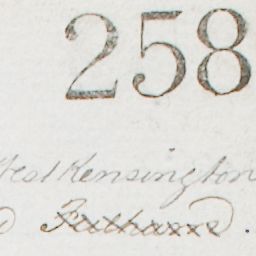 258
West Kensington
Fulham